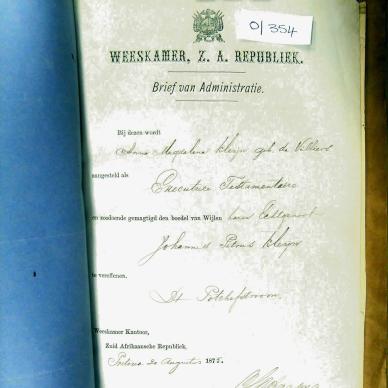 0/354
WEESKAMER, Z. A. REPUBLIEK.
Brief van Administratie.
Bij dezen wordt
Anna Magdalena Kleijn geb. de Villiers
aangesteld als
Executrice Testamentaire
en zoodoende gemagtigd den boedel van Wijlen haren Echtgenoot
Johannes Petrus Kleijn
te vereffenen.
Dt Potchefstroom
Weeskamer Kantoor,
Zuid Afrikaansche Republiek,
Pretoria 20 Augustus 187